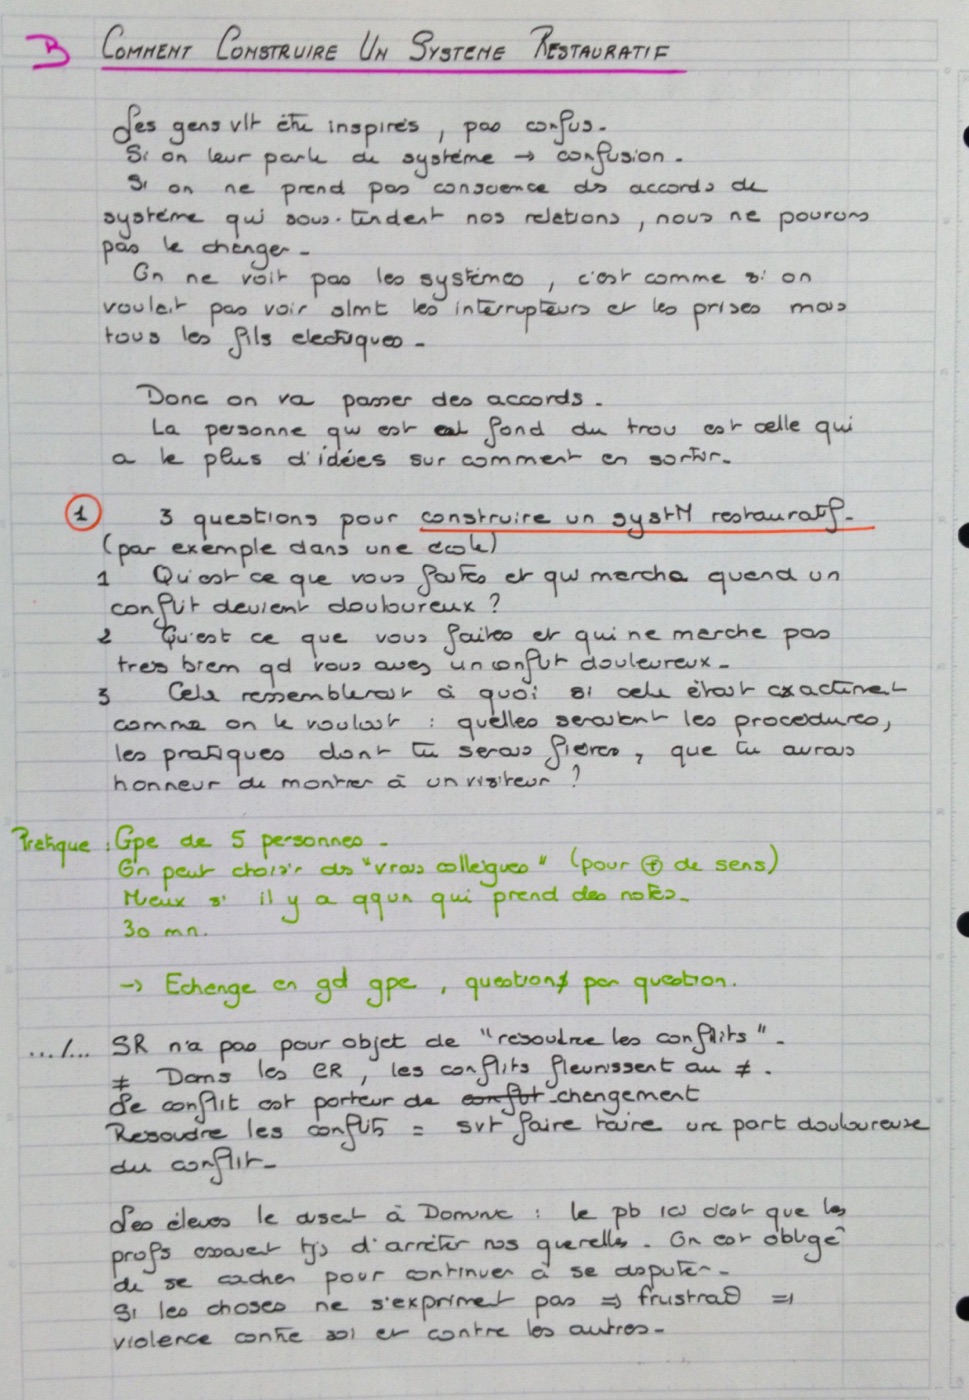 B COMMENT CONSTRUIRE UN SYSTEME RESTAURATIF
Les gens vlt être inspirés, pas confus.
Si on leur parle de système → confusion.
Si on ne prend pas conscience ds accords de
système qui sous-tendent nos relations, nous ne pourons
pas le changer.
On ne voit pas les systèmes, c'est comme si on
voulait pas voir slmt les interrupteurs et les prises mais
tous les fils electriques.
Donc on va passer des accords.
La personne qui est au fond du trou est celle qui
a le plus d'idées sur comment en sortir.
1 3 questions pour construire un systM restauratif.
(par exemple dans une école)
1 Qu'est ce que vous faites et qui marche quand un
conflit devient douloureux ?
2 Qu'est ce que vous faites et qui ne marche pas
tres bien qd vous avez un conflit douleureux.
3 Cela ressemblerait à quoi si cela était exactement
comme on le voulait : quelles seraient les procedures,
les pratiques dont tu serais fieres, que tu aurais
honneur de montrer à un visiteur ?
Pratique : Gpe de 5 personnes.
On peut choisir ds "vrais collègues" (pour ⊕ de sens)
Mieux si il y a qqun qui prend des notes.
30 mn.
→ Echange en gd gpe, question par question.
.../... SR n'a pas pour objet de "resoudre les conflits".
≠ Dans les CR, les conflits fleurissent au ≠.
Le conflit est porteur de conflit changement
Resoudre les conflits = svt faire taire une part douloureuse
du conflit.
Les élèves le disent à Dominic : le pb ici c'est que les
profs essaient tjs d'arrêter nos querelles. On est obligé
de se cacher pour continuer à se disputer.
Si les choses ne s'expriment pas ⇒ frustraθ ⇒
violence contre soi et contre les autres.